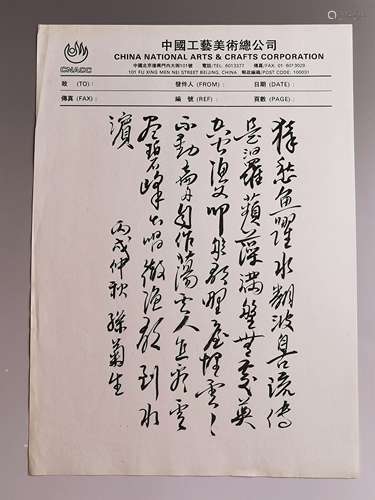 CNACC
中國工藝美術總公司
CHINA NATIONAL ARTS & CRAFTS CORPORATION
中國北京復興門內大街101號 電話/TEL: 6013377 傳真/FAX: 01-6073029
101 FU XING MEN NEI STREET BEIJING, CHINA 郵政編碼/POST CODE: 100031
致 (TO): 發件人 (FROM): 日期 (DATE):
傳真 (FAX): 編號 (REF): 頁數 (PAGE):
猿愁魚躍水翻波自古流傳
是汨羅蘋藻滿盤無處奠
空聞漁父叩舷歌野屋埋雲
不動扁舟自作蕩雲人
碧峰高唱徹漁歌到水
濱
丙戌仲秋 孫菊生